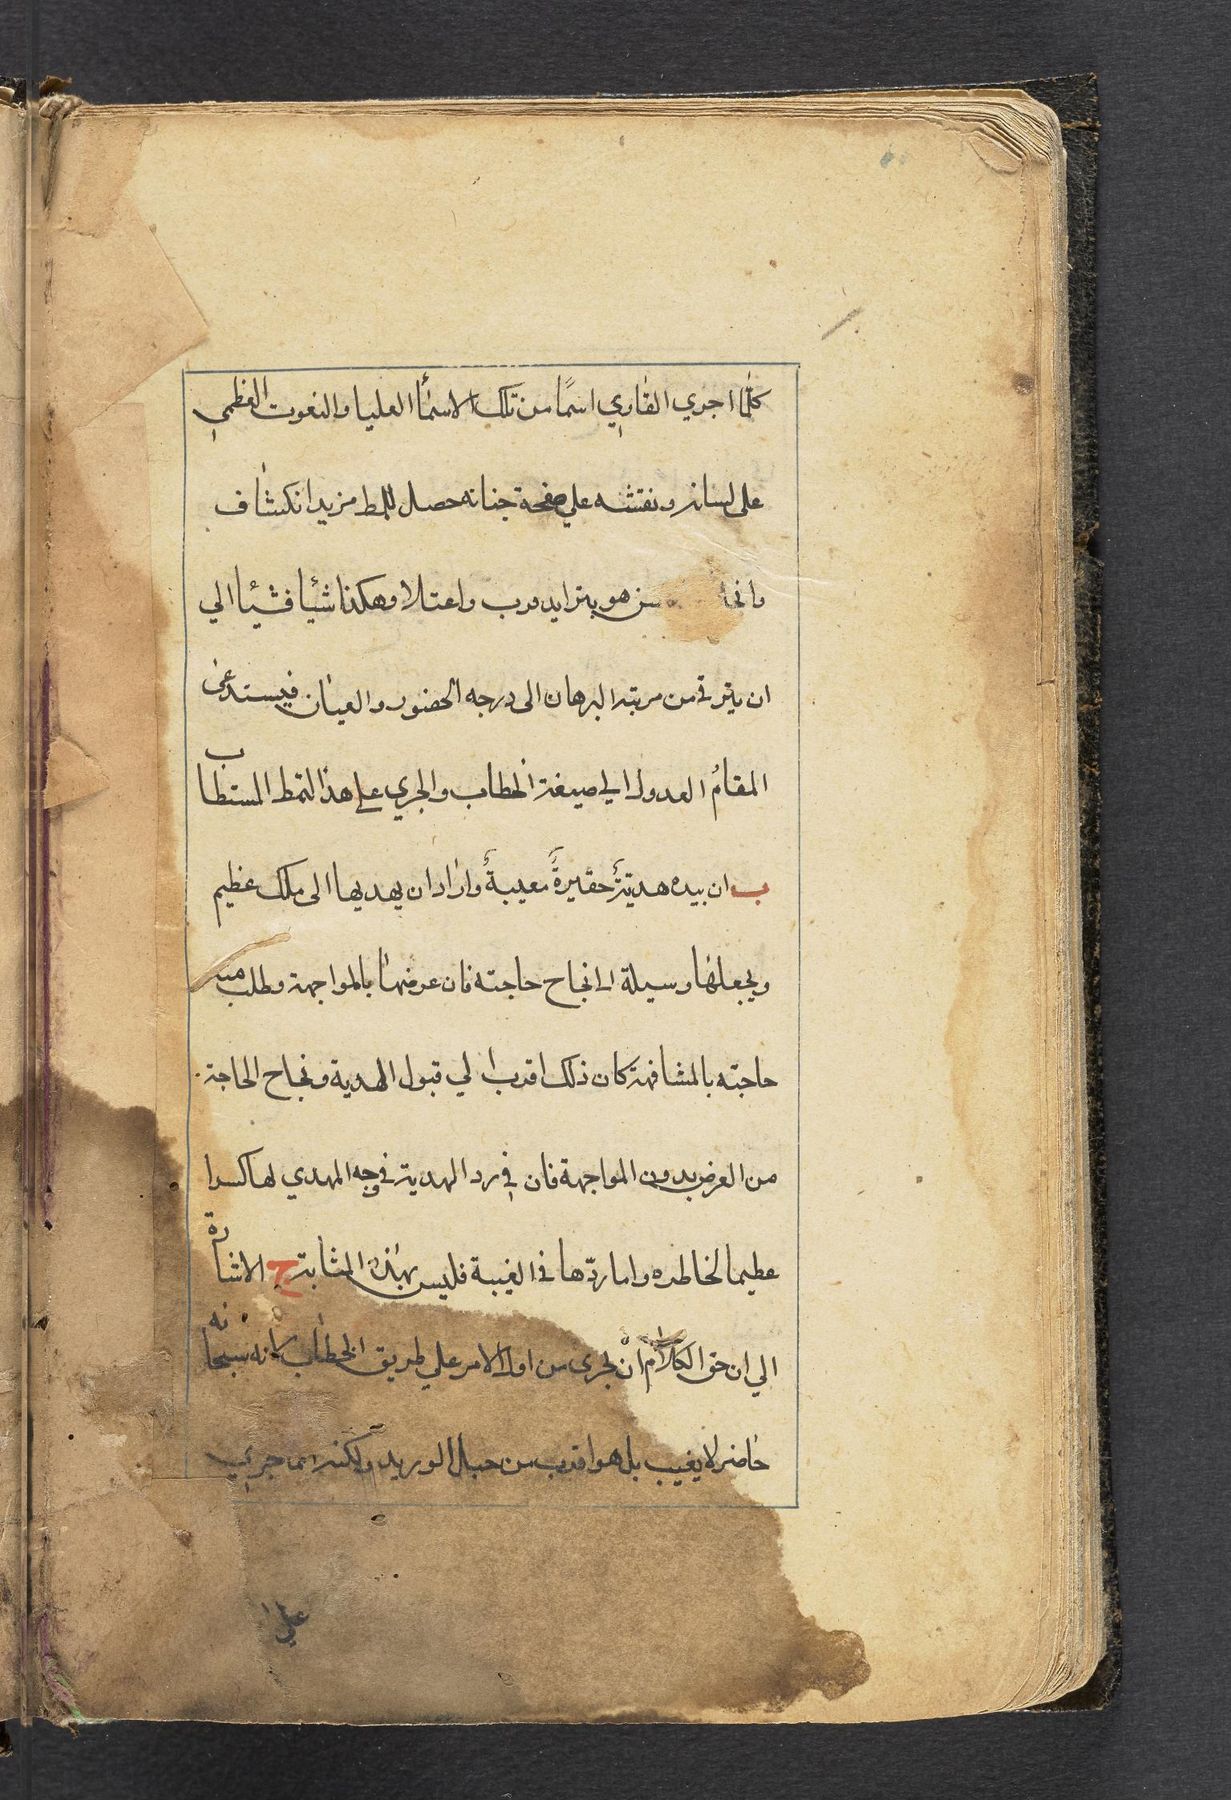 كلّما اجري القاري اسمًا من تلك الاسمأ العليا والنعوت العظمي
علي لسانه ونقشه علي صفحة جنانه حصل للمط مزيد انكشاف
هو بتزايد قرب واعتلا وهكذا شيأ فشيأ الي
ان يترقي من مرتبه البرهان الى درجه الحضور والعيان فيستدعى
المقامُ العدول الي صيغة الخطاب والجري علي هذا النمط المستطاب
ب ان بيده هديةٌ حقيرةٌ معيبةٌ واراد ان يهديها الى ملك عظيم
ويجعلها وسيلة الى انجاح حاجته فان عرضها بالمواجهة وطلب منه
حاجته بالمشافهة كان ذلك اقرب الي قبول الهدية ونجاح الحاجة
من العرض بدون المواجهة فان في رد الهدية في وجه المهدي لها كسرا
عظيما لخاطره واما ردّها في الغيبة فليس بهذه المثابة ج الاشارة
الي ان حق الكلام انْ يجرى من اول الامر علي طريق الخطاب لانه سبحانه
حاضر لا يغيب بل هو اقرب من حبل الوريد ولكنه انما جري
علي